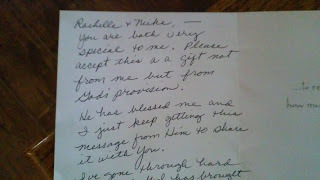 Rachelle & Mike, —
You are both very
special to me. Please
accept this a a gift not
from me but from
God's provision.
He has blessed me and
I just keep getting this
message from Him to share
it with you.
I've gone through hard
has brought
how mu